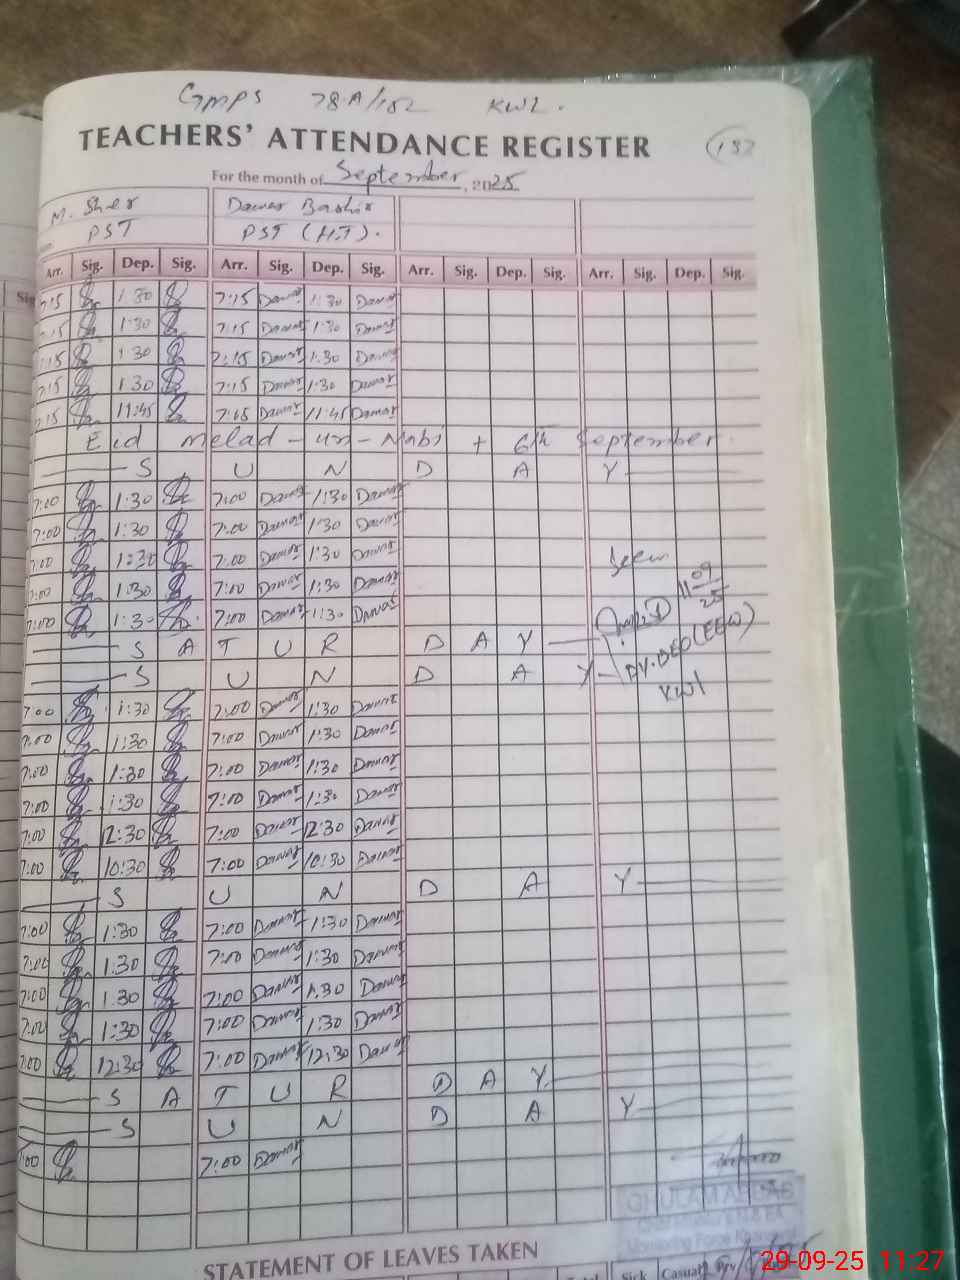 GMPS 78-A/152 KWL.
TEACHERS' ATTENDANCE REGISTER
For the month of September, 2025
M. Sher Dawar Bashir
PST PST (H.T).
Arr. Sig. Dep. Sig. Arr. Sig. Dep. Sig. Arr. Sig. Dep. Sig. Arr. Sig. Dep. Sig.
7:15 1:30 7:15 Dawar 1:30 Dawar
7:15 1:30 7:15 Dawar 1:30 Dawar
7:15 1:30 7:15 Dawar 1:30 Dawar
7:15 1:30 7:15 Dawar 1:30 Dawar
7:15 11:45 7:15 Dawar 11:45 Dawar
Eid melad-un-Nabi + 6th September.
S U N D A Y
7:00 1:30 7:00 Dawar 1:30 Dawar
7:00 1:30 7:00 Dawar 1:30 Dawar
7:00 12:30 7:00 Dawar 1:30 Dawar
7:00 1:30 7:00 Dawar 1:30 Dawar
7:00 1:30 7:00 Dawar 1:30 Dawar
Seen
11/09/25
S A T U R D A Y
DY.DEO(EEW)
KWL
S U N D A Y
7:00 1:30 7:00 Dawar 1:30 Dawar
7:00 1:30 7:00 Dawar 1:30 Dawar
7:00 1:30 7:00 Dawar 1:30 Dawar
7:00 1:30 7:00 Dawar 1:30 Dawar
7:00 12:30 7:00 Dawar 12:30 Dawar
7:00 10:30 7:00 Dawar 10:30 Dawar
S U N D A Y
7:00 1:30 7:00 Dawar 1:30 Dawar
7:00 1:30 7:00 Dawar 1:30 Dawar
7:00 1:30 7:00 Dawar 1:30 Dawar
7:00 1:30 7:00 Dawar 1:30 Dawar
7:00 12:30 7:00 Dawar 12:30 Dawar
S A T U R D A Y
S U N D A Y
7:00 7:00 Dawar
GHULAM ABBAS
Monitoring Force
STATEMENT OF LEAVES TAKEN
Sick Casual
29-09-25 11:27